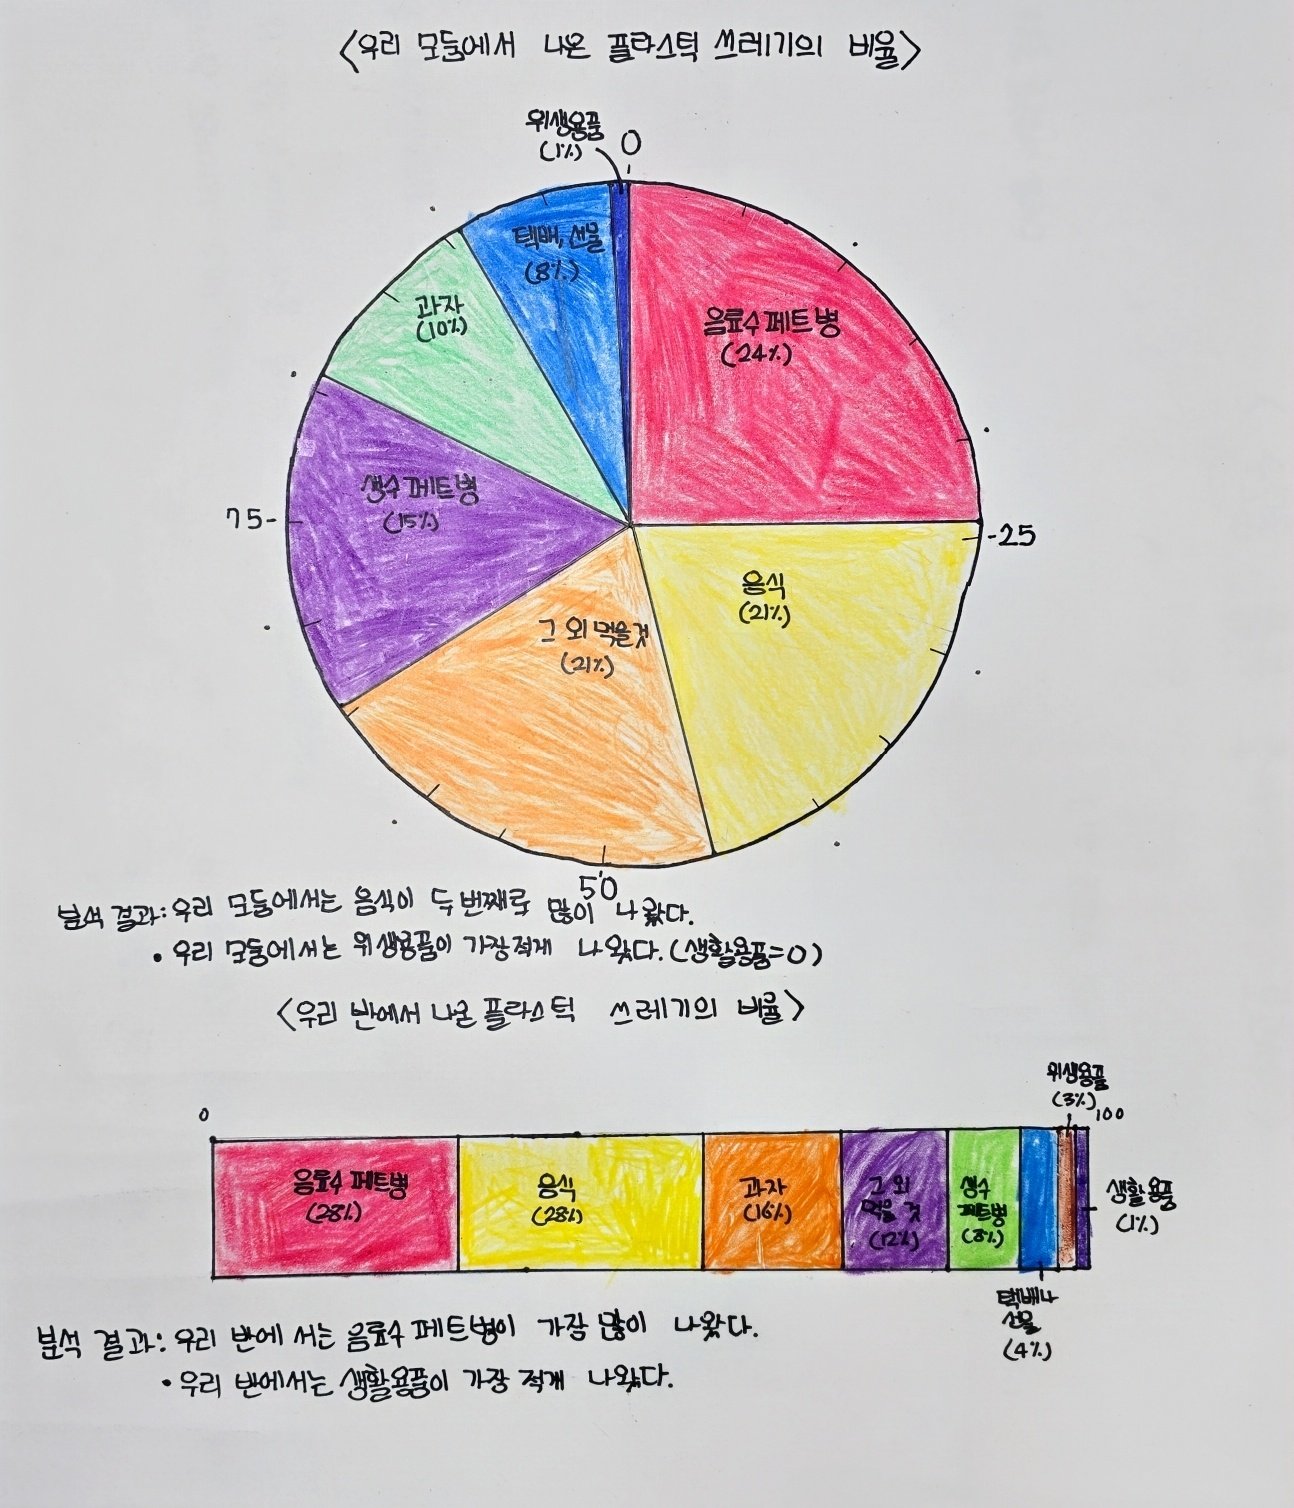 <우리 모둠에서 나온 플라스틱 쓰레기의 비율>
위생용품
(1%)
0
택배, 선물
(8%)
과자
(10%)
음료수 페트병
(24%)
생수 페트병
(15%)
75-
-25
음식
(21%)
그 외 먹을것
(21%)
50
분석 결과: 우리 모둠에서는 음식이 두 번째로 많이 나왔다.
• 우리 모둠에서는 위생용품이 가장 적게 나왔다. (생활용품=0)
<우리 반에서 나온 플라스틱 쓰레기의 비율>
위생용품
(3%)
0
100
음료수 페트병
(28%)
음식
(28%)
과자
(16%)
그 외
먹을 것
(12%)
생수
페트병
(8%)
생활용품
(1%)
택배나
선물
(4%)
분석 결과: 우리 반에서는 음료수 페트병이 가장 많이 나왔다.
• 우리 반에서는 생활용품이 가장 적게 나왔다.